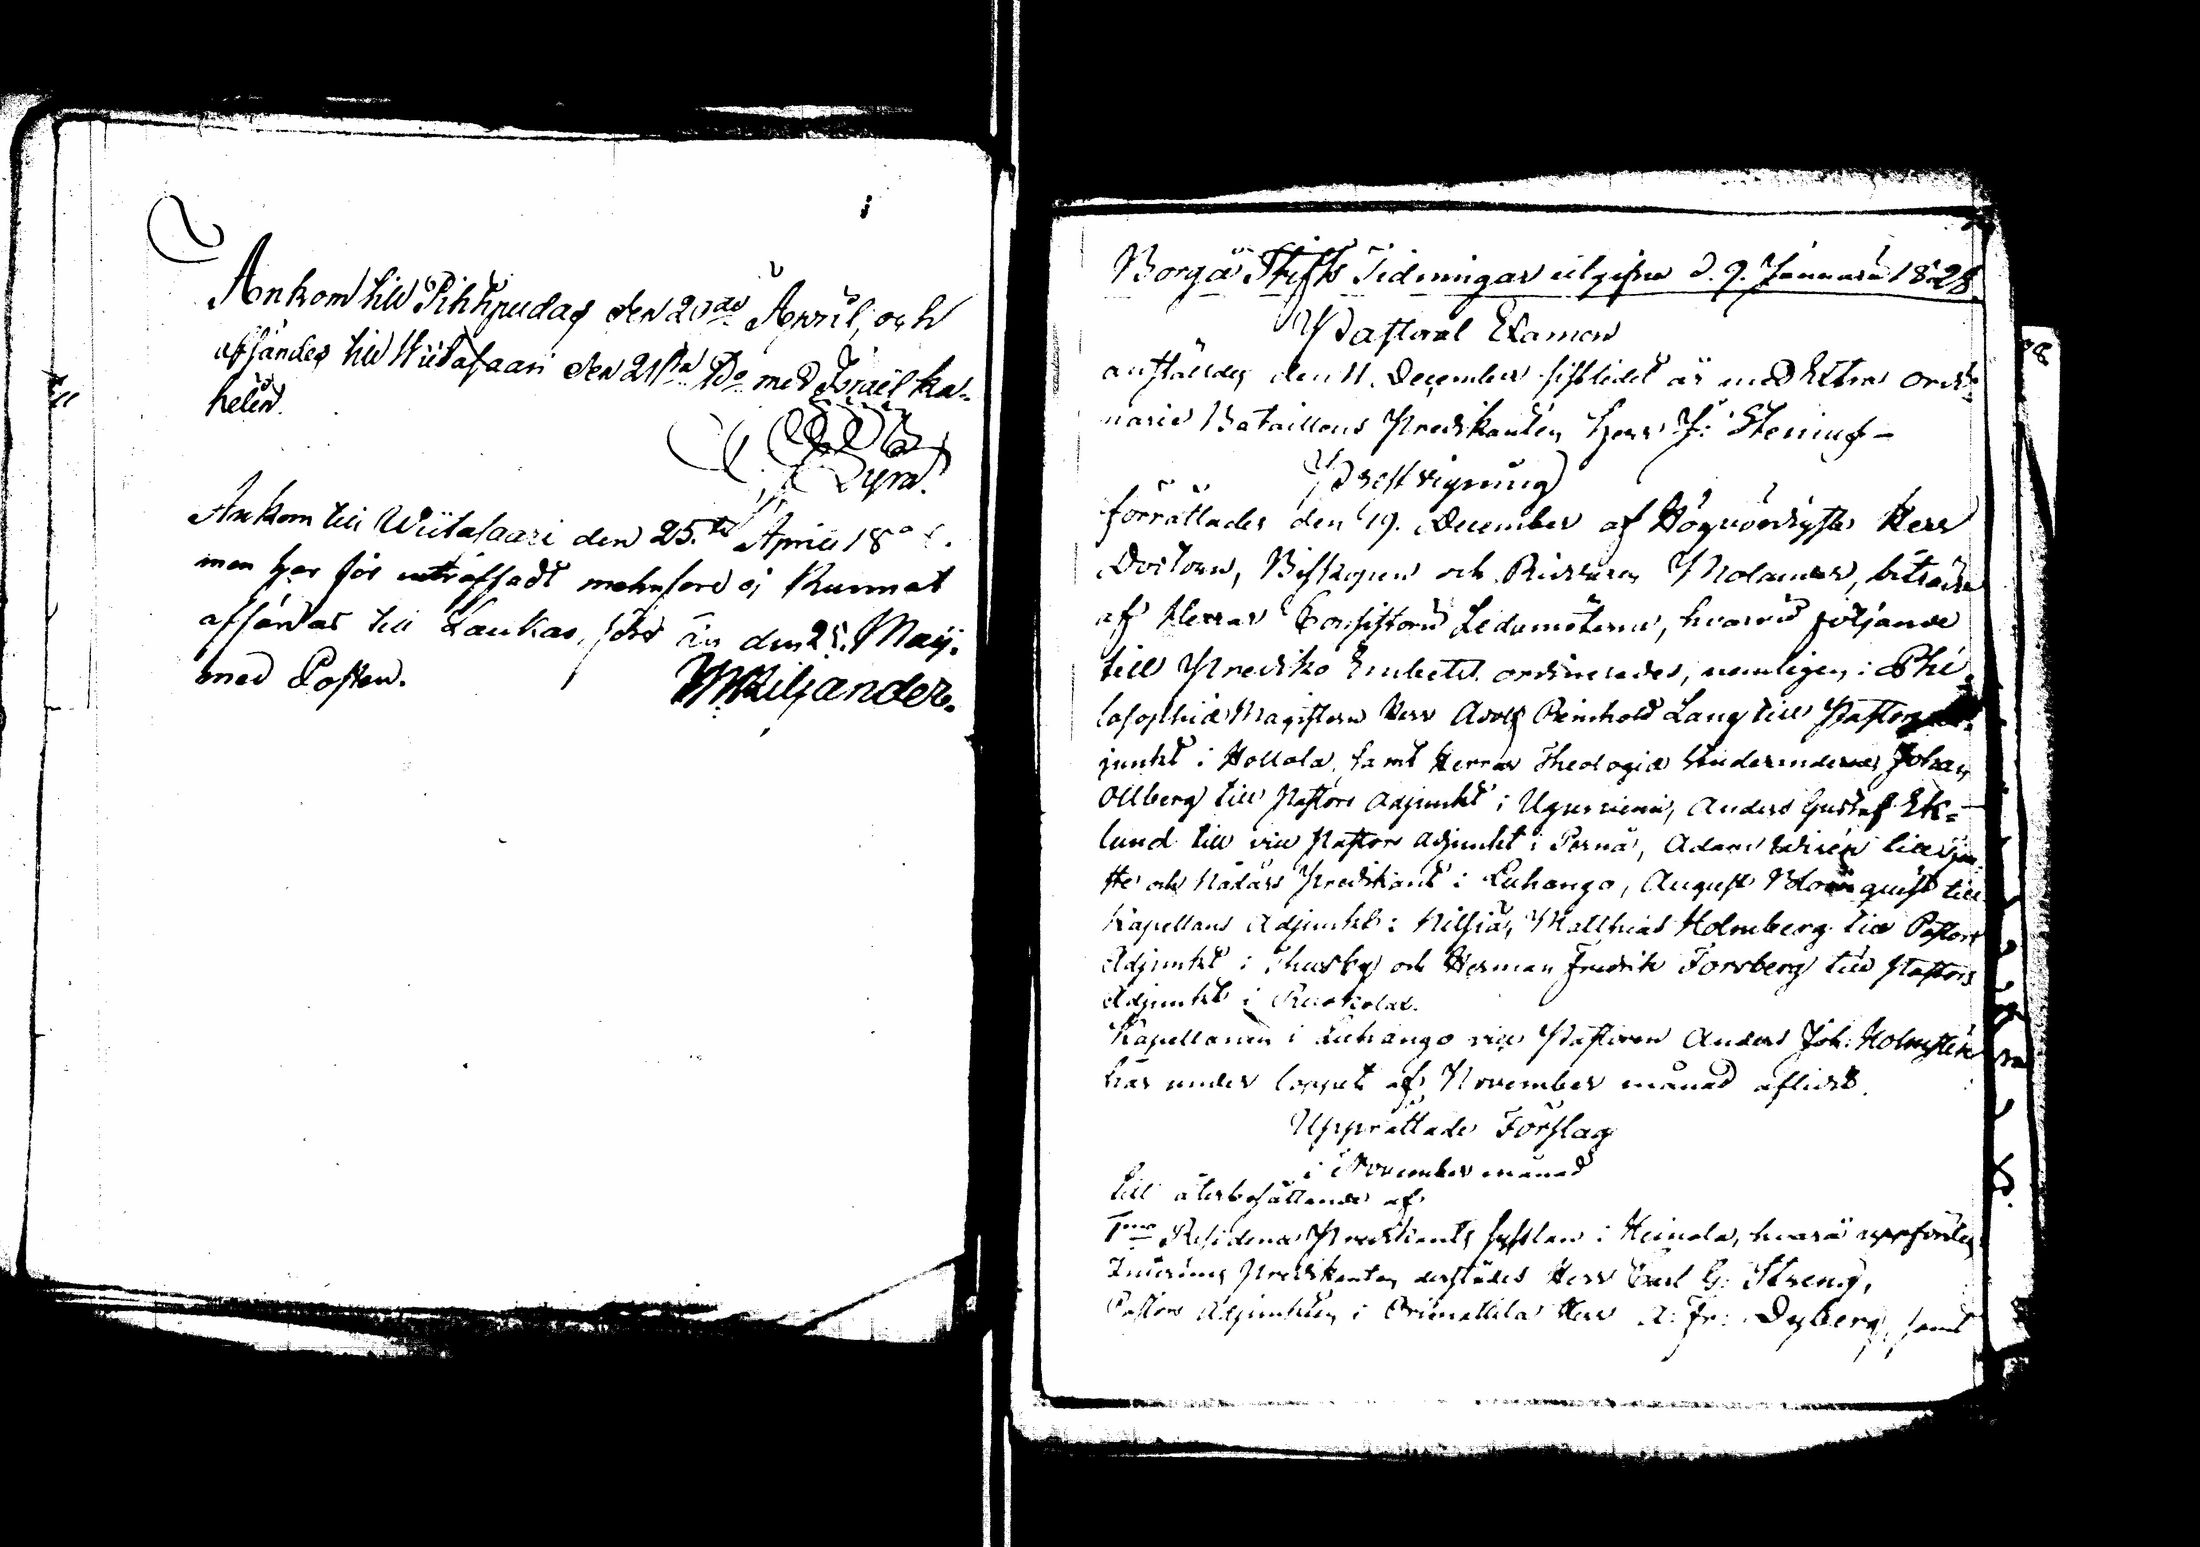 Ankom till Pihtipudas den 20de April, och
afsändes till Wiitasaari den 21sta Do med Israel Ka-
helin.
Ankom till Wiitasaari den 25.te April 18
men har för inträffadt menföre ej kunnat
afsändas till Laukas, förr än den 25. Maij.
med Posten.
WKiljander.
Borgå Stifts Tidningar utgifne d. 9. Januarii 1828.
Pastoral Examen
anstäldes den 11. December sistledet år med Extra ordi-
narie Bataillons Predikanten Herr F: Stenius -
Prestvigning
förrättades den 19. December af Högvördigste Herr
Doctorn, Biskopen och Riddaren Molander, biträdd
af Herrar Consistorii Ledamöterne, hvarvid följande
till Prediko Embetet ordinerades, nemligen: Phi-
losophiæ Magistern Herr Adolf Reinhold Lang till Pastors
junkt i Hollola, samt Herrar Theologiæ Studerandena Johan
Ollberg till Pastors Adjunkt i Uguniemi, Anders Gustaf Ek-
lund till vice Pastors Adjunkt i Perno, Adam Wirén till
ste och Nådårs Predikant i Luhango, August Blomquist till
Kapellans Adjunkt i Nilsiä, Matthias Holmberg till Pastors
Adjunkt i Thusby och Herman Fredrik Forsberg till Pastors
Adjunkt i Ruokolax.
Kapellanen i Luhango vice Pastoren Anders Joh: Holmstén
har under loppet af November månad aflidit.
Upprättade Förslag
i November månad
till återbesättande af
1mo Residence Predikants sysslan i Heinola, hvarå uppfördes
Predikanten derstädes Herr Carl G: Streng,
Pastors Adjunkten i Orimattila Herr A: Fr: Dyberg, samt